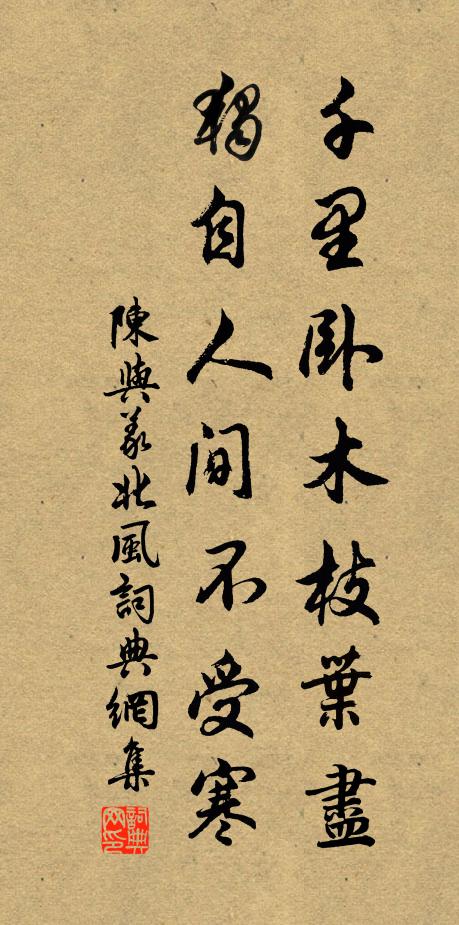 千里卧木枝葉盡
獨自人间不受寒
陳與義北風詞典網集
詞典网印